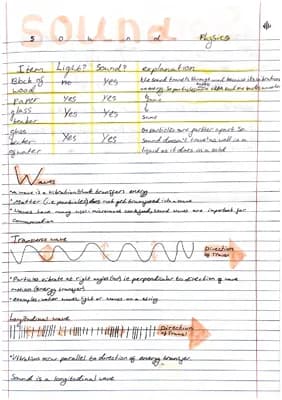 sound
s o u n d Physics
Item Light? Sound? explanation
Block of wood no Yes the sound travels through wood because its vibrations
paper Yes Yes same
glass beaker Yes Yes same
glass beaker of water Yes Yes particles are further apart so sound doesn't travel as well in a liquid as it does in a solid
Waves
• A wave is a vibration that transfers energy
• Matter (i.e. particles) does not get transferred in a wave
• Waves have many uses: microwaves cook food, sound waves are important for communication
Transverse wave
Direction of Travel
• Particles vibrate at right angles to (i.e. perpendicular to) direction of wave
motion (energy transfer)
• examples: water waves, light or waves on a string
Longitudinal wave
Direction of Travel
• Vibrations occur parallel to direction of energy transfer.
Sound is a longitudinal wave